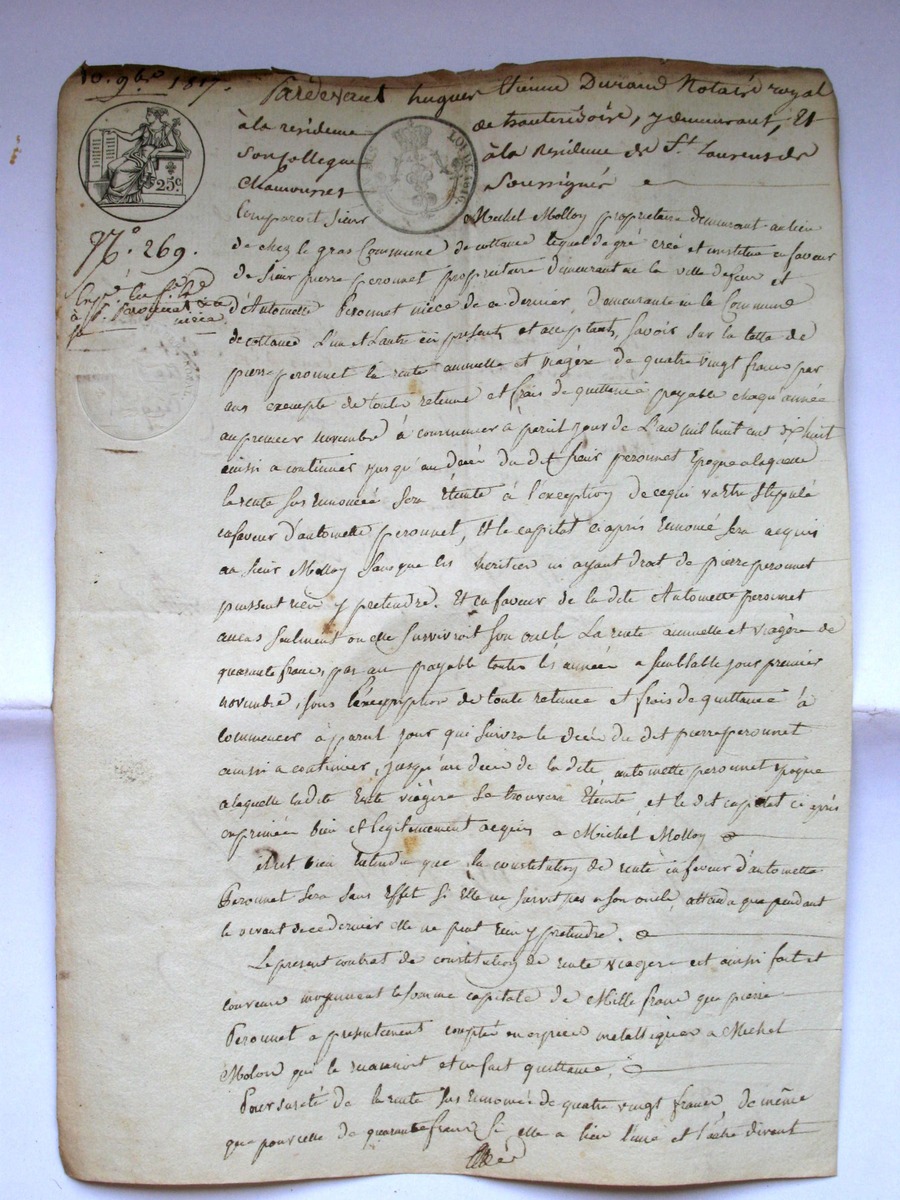 10. 9bre 1817.
Pardevant hugues Etienne Durand Notaire royal
à la residence de hauterivoire, y demeurant, Et
Son Collegue à la Residence de St. Laurens de
Chamousset Soussignés
25c
LOI DE 1816.
Comparoit Sieur Michel Molloy propriétaire demeurant au lieu
N.o 269.
de chez le gras Commune de cottance lequel de gré crée et constitue en faveur
de Sieur pierre peronnet propriétaire demeurant en la ville de feur et
d'Antoinette Peronnet niece de ce dernier, demeurante en la Commune
de cottance L'un et L'autre ici présents et acceptants, Savoir Sur la tette de
pierre peronnet la rente annuelle et viagère de quatre vingt francs par
ans exempte de toute retenue et frais de quittance payable chaqu'année
au premier novembre à commencer à pareil jour de L'an mil huit cent dixhuit
ainsi a continuer jusqu'au decès du dit Sieur peronnet Epoque a laquelle
la rente sus Ennoncée Sera Eteinte à l'exception de ce qui va être Stipulé
en faveur d'antoinette peronnet, Et le capital ci après Ennoncé Sera acquis
au Sieur Molloy Sans que les heritiers ni ayant droit de pierre peronnet
puissent rien y pretendre. Et en faveur de la dite Antoinette peronnet
au cas Seulment ou elle Survivroit Son oncle La rente annuelle et viagère de
quarante francs par an payable toutes les années a Semblable jour premier
novembre, sous l'exemption de toute retenue et frais de quittance à
commencer à pareil jour qui Suivra le decès du dit pierre peronnet
ainsi a continuer, jusqu'au deces de la dite, antoinette peronnet Epoque
a laquelle la dite Rente viagère Se trouvera Eteinte, et le dit capital ci après
exprimée bien et legitimement acquis a Michel Molloy
il est bien Entendu que la constitution de rente en faveur d'antoinette
Peronnet Sera Sans Effet Si Elle ne Survit pas a son oncle, attendu que pendant
le vivant de ce dernier elle ne peut rien y pretendre.
Le present contrat de constitution de rente viagere est ainsi fait et
convenu moyennant la Somme capitale de Mille francs que pierre
Peronnet a présentement comptée en espèces metalliques a Michel
Molon qui le reconnoit et en fait quittance,
Pour Sureté de la rente Sus Ennoncée de quatre vingt francs de même
que pour celle de quarante francs Si elle a lieu l'une et l'autre divant